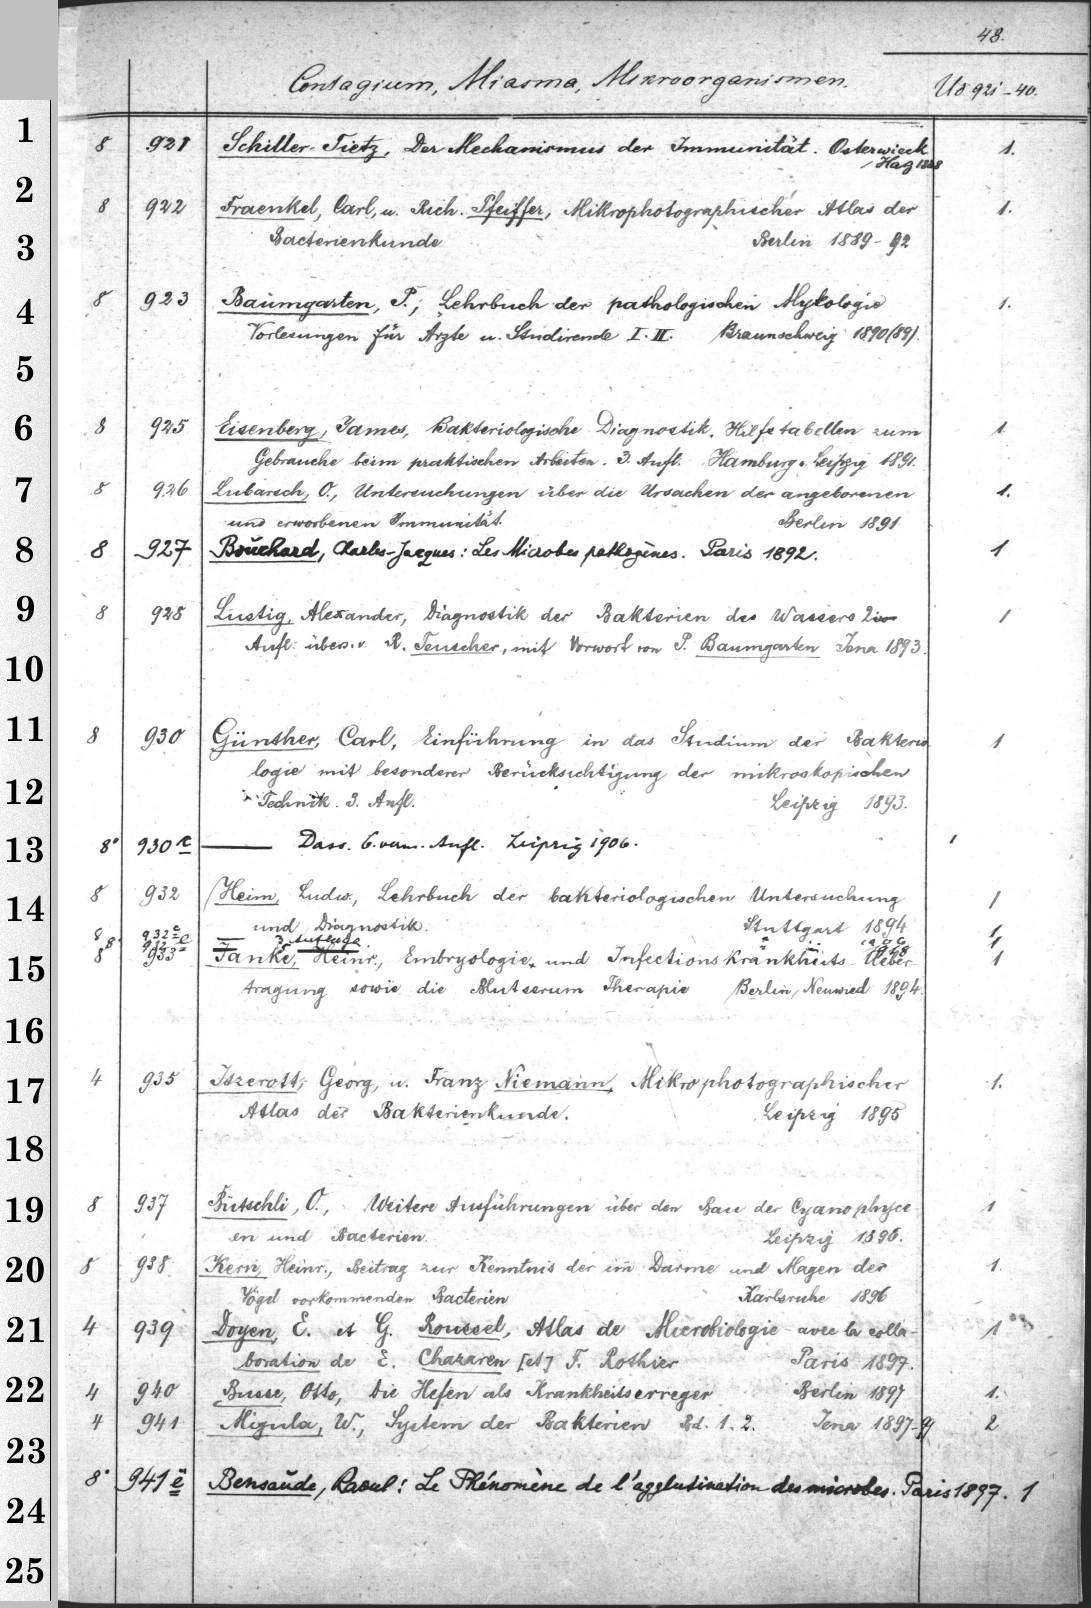 48.
Contagium, Miasma, Mikroorganismen. Ud 921-40.
1
8 921 Schiller-Tietz, Der Mechanismus der Immunität. Osterwieck 1.
/Harz 1888
2
8 922 Fraenkel, Carl, u. Rich. Pfeiffer, Mikrophotographischer Atlas der 1.
3
Bacterienkunde Berlin 1889-92
4
8 923 Baumgarten, P., Lehrbuch der pathologischen Mykologie 1.
Vorlesungen für Ärzte u. Studirende I. II. Braunschweig 1890(89).
5
6
8 925 Eisenberg, James, Bakteriologische Diagnostik. Hilfstabellen zum 1
Gebrauche beim praktischen Arbeiten. 3. Aufl. Hamburg u. Leipzig 1891.
7
8 926 Lubarsch, O., Untersuchungen über die Ursachen der angeborenen 1.
und erworbenen Immunität. Berlin 1891
8
8 927 Bouchard, Charles-Jacques: Les Microbes pathogènes. Paris 1892. 1
9
8 928 Lustig, Alexander, Diagnostik der Bakterien des Wassers 2te 1
Aufl. übers. v. R. Teuscher, mit Vorwort von P. Baumgarten Jena 1893.
10
11
8 930 Günther, Carl, Einführung in das Studium der Bakterio 1
logie mit besonderer Berücksichtigung der mikroskopischen
12
Technik. 3. Aufl. Leipzig 1893.
13
8° 930 e — Dass. 6. verm. Aufl. Leipzig 1906. 1
14
8 932 Heim, Ludw., Lehrbuch der bakteriologischen Untersuchung 1
und Diagnostik. Stuttgart 1894
8 932 e — 3. Auflage 1
15
8 933 Janke, Heinr., Embryologie und Infectionskrankheits-Ueber- 1
tragung sowie die Blutserum Therapie Berlin, Neuwied 1894.
16
17
4 935 Itzerott, Georg, u. Franz Niemann, Mikrophotographischer 1.
Atlas der Bakterienkunde. Leipzig 1895
18
19
8 937 Bütschli, O., Weitere Ausführungen über den Bau der Cyanophyce 1
en und Bacterien. Leipzig 1896.
20
8 938 Kern, Heinr., Beitrag zur Kenntnis der im Darme und Magen der 1.
Vögel vorkommenden Bacterien Karlsruhe 1896
21
4 939 Doyen, E. et G. Roussel, Atlas de Microbiologie avec la colla- 1
boration de E. Chazaren [et] F. Rothier Paris 1897.
22
4 940 Busse, Otto, Die Hefen als Krankheitserreger Berlin 1897 1.
4 941 Migula, W., System der Bakterien Bd. 1. 2. Jena 1897-99 2
23
8° 941 e Bensaude, Raoul: Le Phénomène de l'agglutination des microbes. Paris 1897. 1
24
25